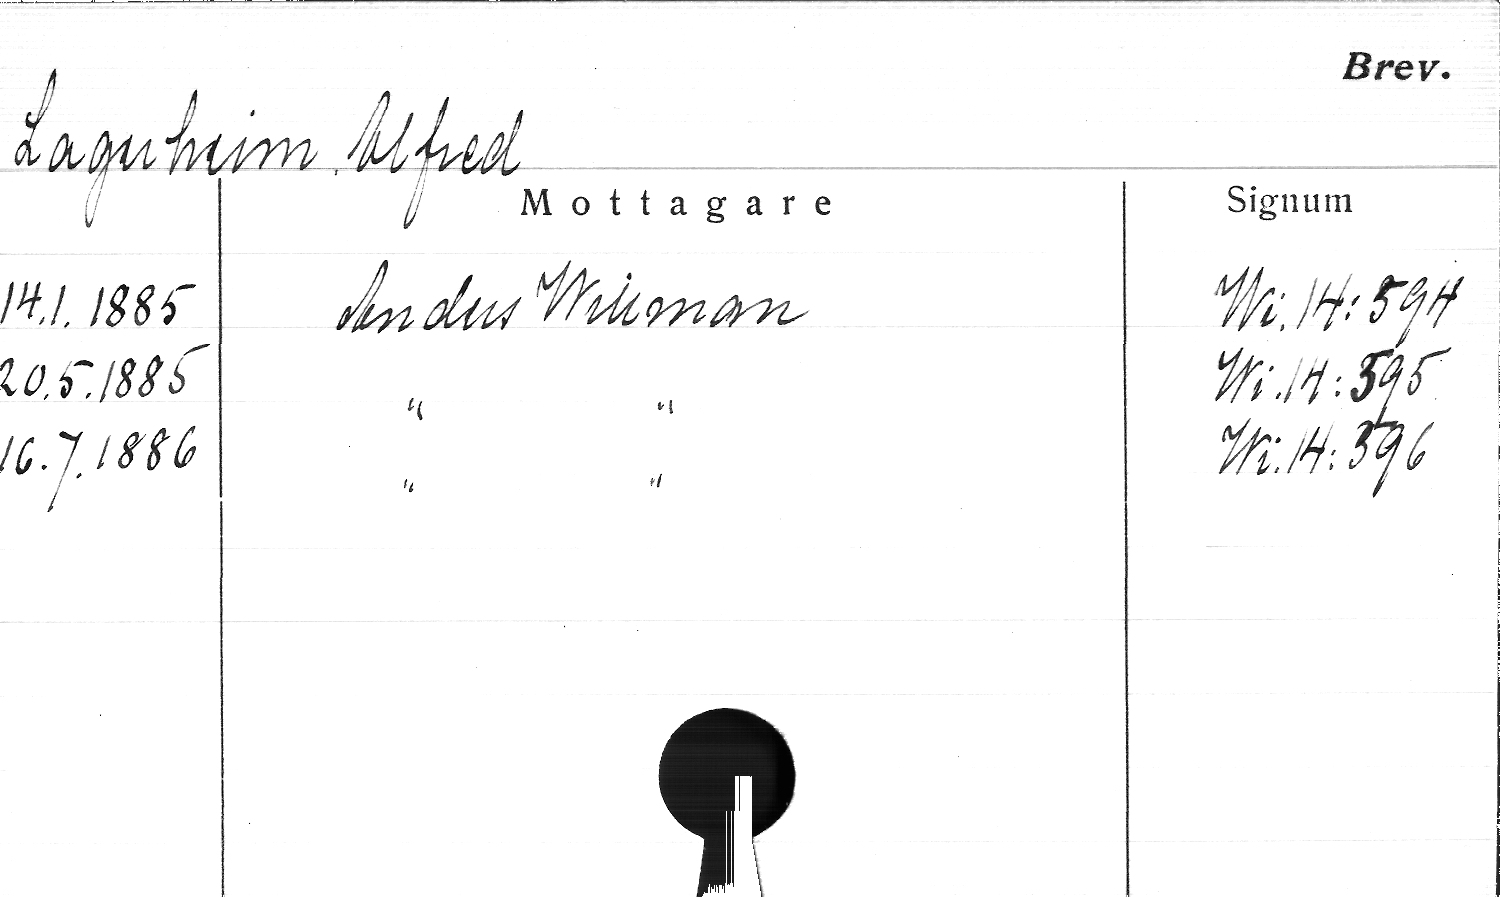 Brev.
Lagerheim, Alfred
Mottagare Signum
14.1.1885 Anders Willman Wi.14:594
20.5.1885 " " Wi.14:595
16.7.1886 " " Wi.14:596